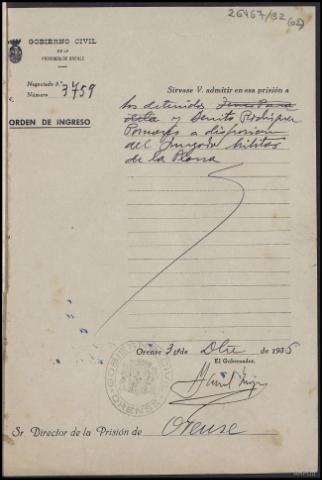 26467/32 (62)
GOBIERNO CIVIL
DE LA
PROVINCIA DE ORENSE
Negociado 3.º
Número 3459
ORDEN DE INGRESO
Sírvase V. admitir en esa prisión a
los detenidos
y Benito Rodriguez
Pomares a disposicion
del Juzgado Militar
de la Plaza
GOBIERNO CIVIL
ORENSE
Orense 3 de Dbre de 1936
El Gobernador,
Sr Director de la Prisión de Orense